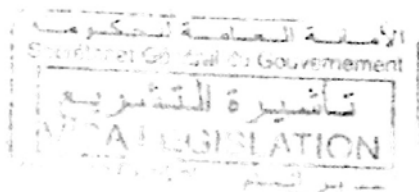 الأمانة العامة للحكومة
Secrétariat Général du Gouvernement
تأشيرة التشريع
VISA LEGISLATION